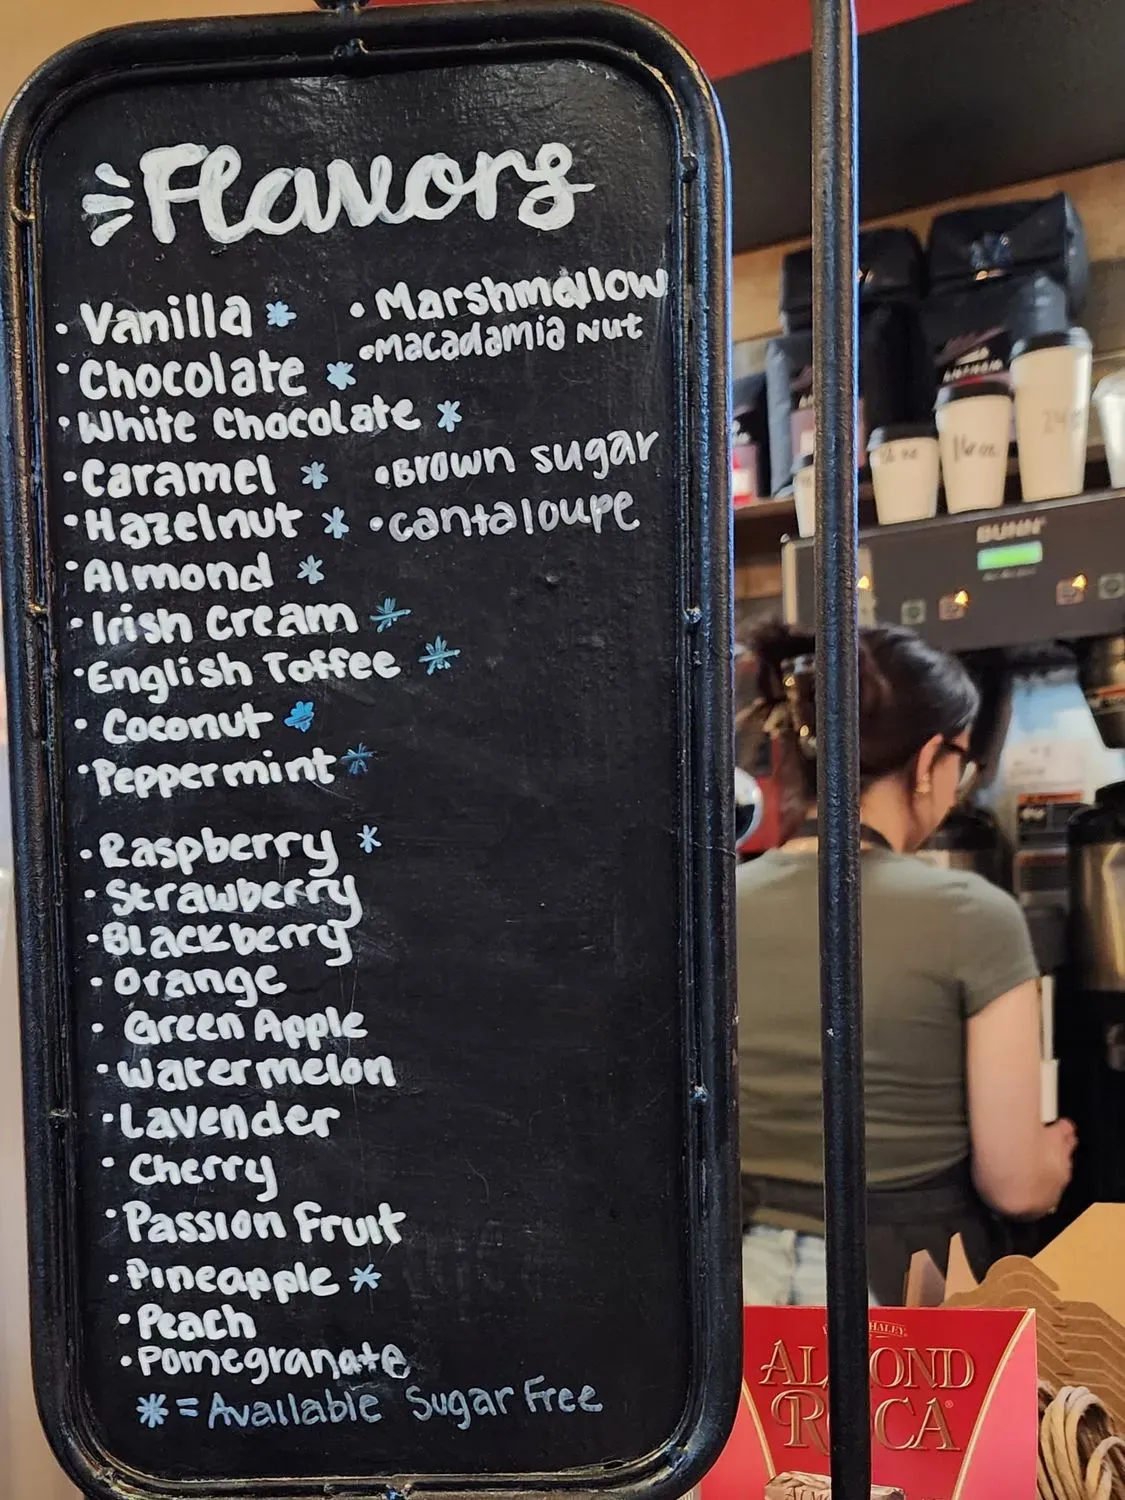 Flavors
• Vanilla *
• Chocolate *
• White Chocolate *
• Caramel *
• Hazelnut *
• Almond *
• Irish Cream *
• English Toffee *
• Coconut *
• Peppermint *
• Raspberry *
• Strawberry
• Blackberry
• Orange
• Green Apple
• Watermelon
• Lavender
• Cherry
• Passion Fruit
• Pineapple *
• Peach
• Pomegranate
* = Available Sugar Free
• Marshmallow
• Macadamia Nut
• Brown sugar
• cantaloupe
16 oz
BUNN
ALMOND
ROCA